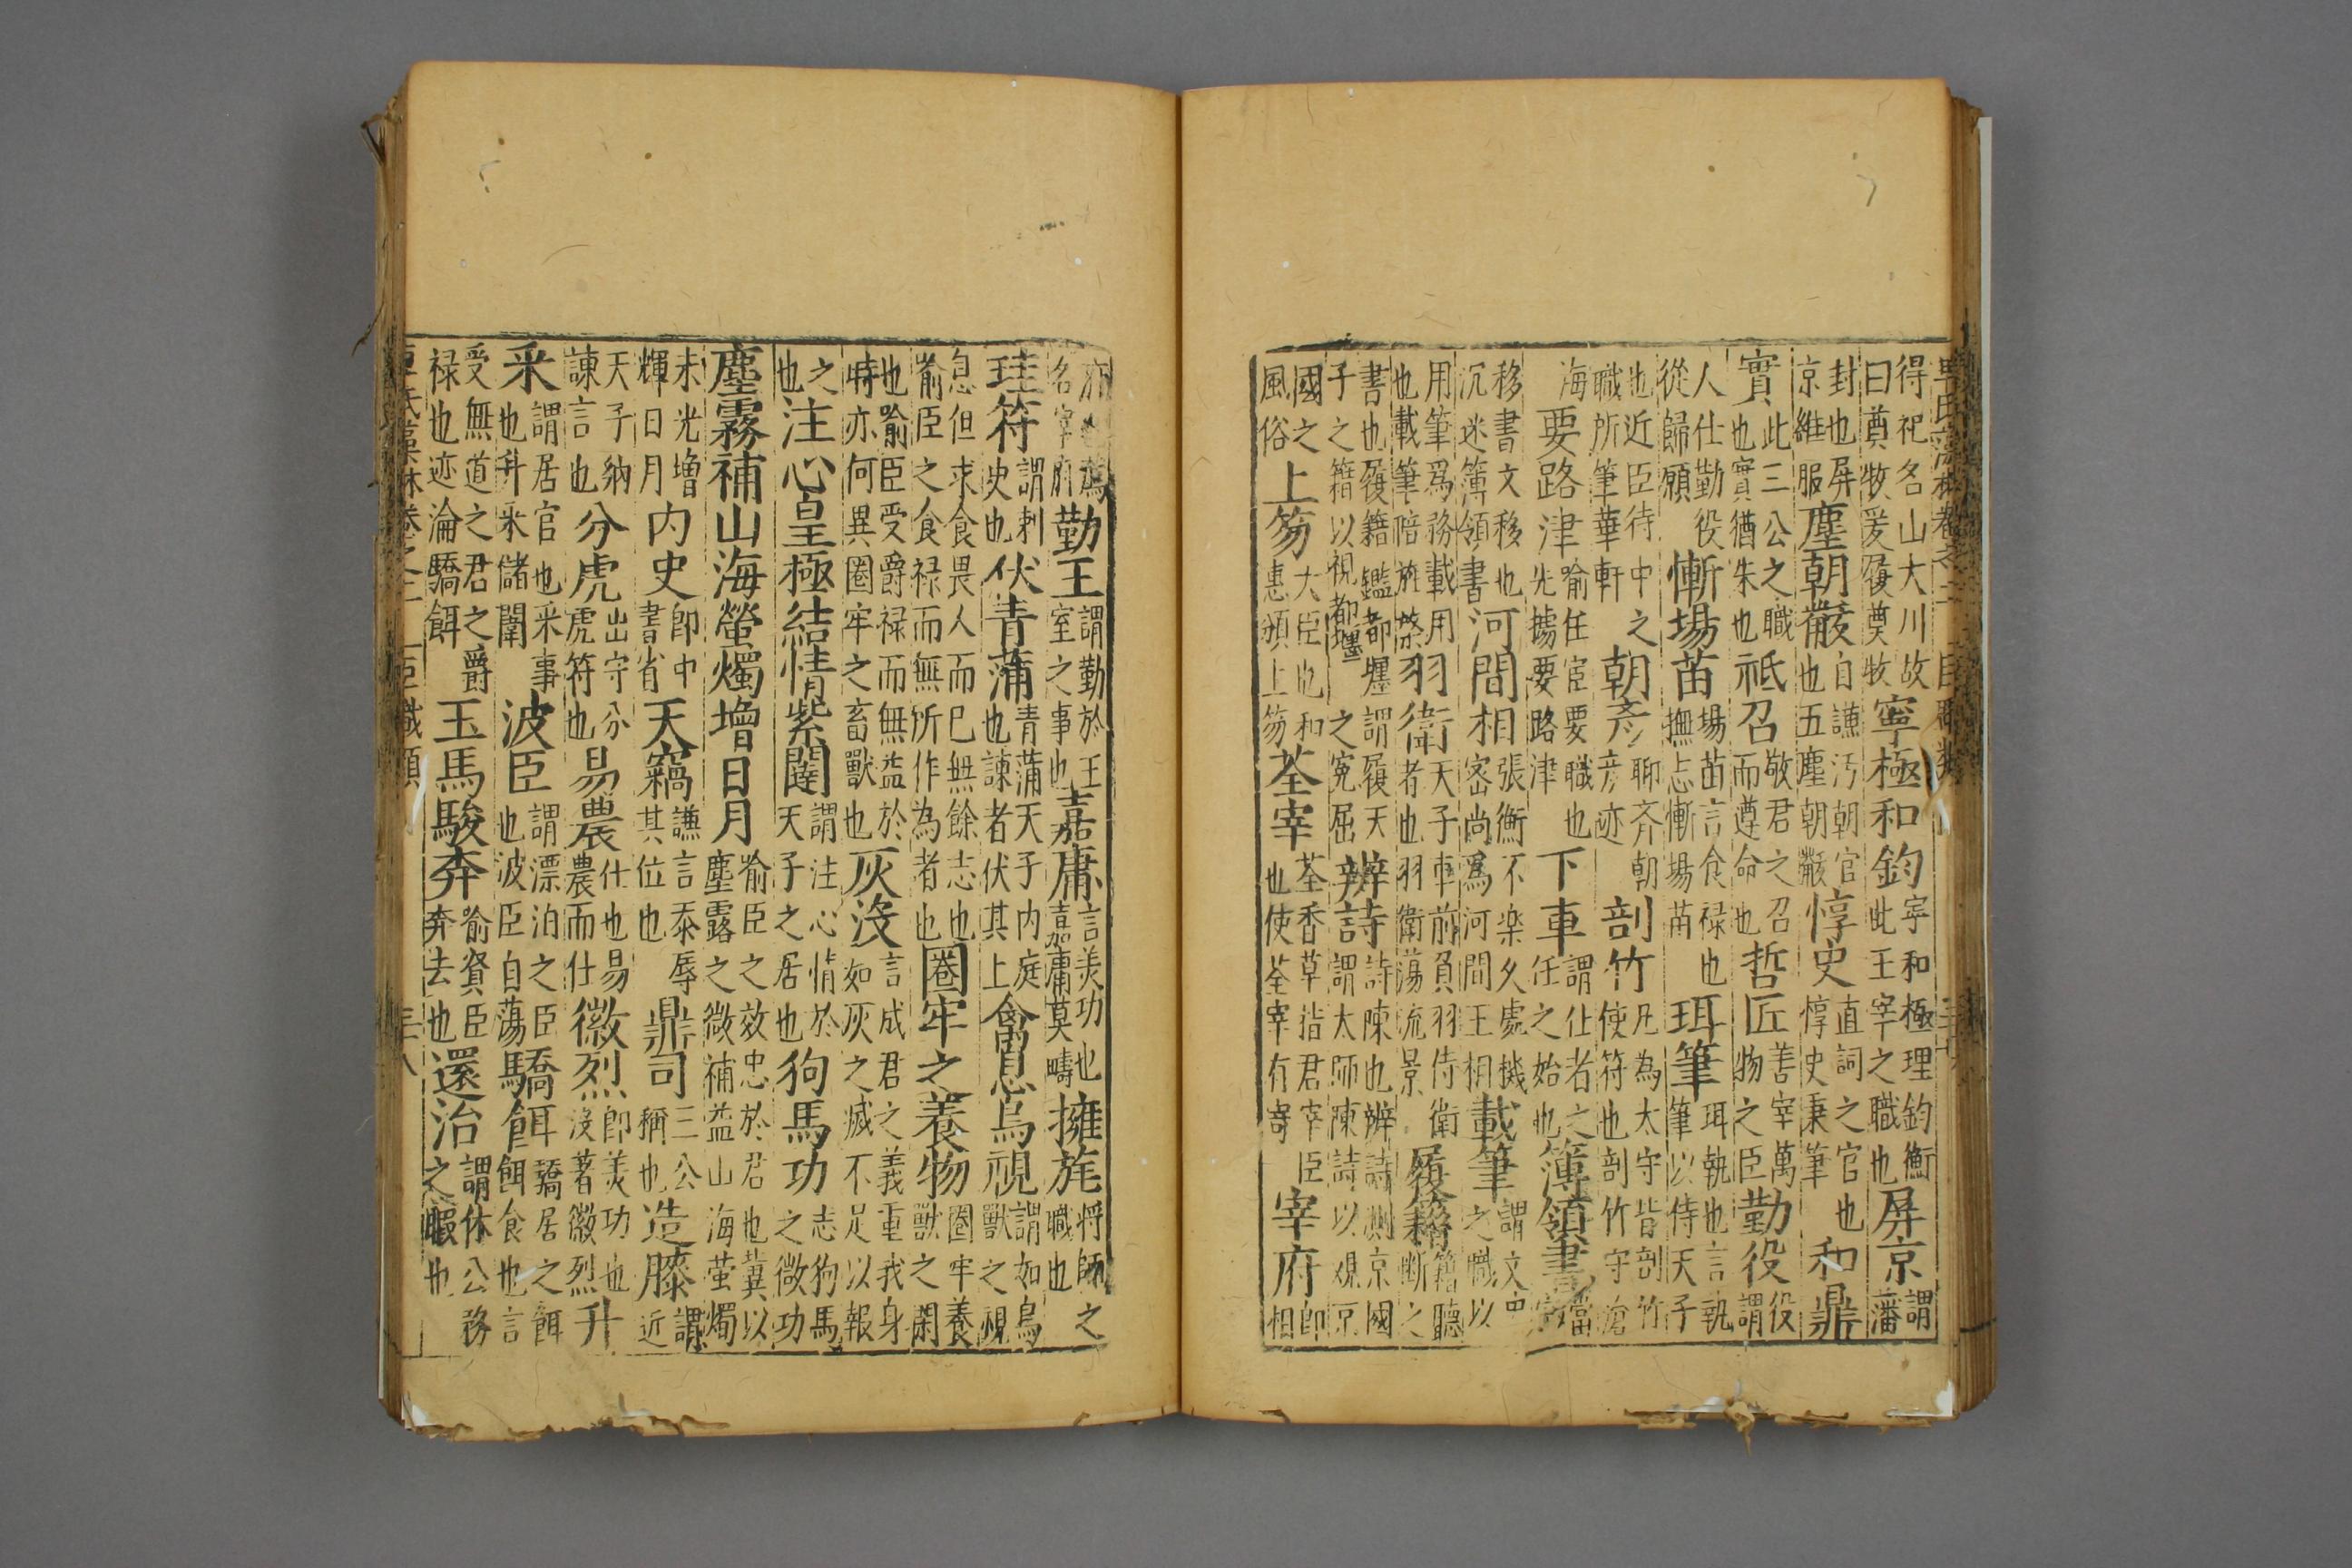 得祀名山大川故曰奠牧爰履奠牧寧極和鈞宰和極理鈞衡此王宰之職也屏京謂藩
封也屏京維服塵朝黻自謙汚朝官也五塵朝黻惇史直詞之官也惇史秉筆和鼎
實此三公之職也實猶朱也祗召敬君之召而遵命也哲匠善宰萬物之臣勤役役謂
人仕勤役從歸願慚場苗場苗言食禄也撫忐慚場苗珥筆珥執也言執筆以侍天子
也近臣待中之職所筆華軒朝彥聊齐朝彥迹剖竹凡為太守皆剖竹使符也剖竹守滄
海要路津喻任宦要職也先據要路津下車謂仕者之任之始也簿領書當
移書文移也沉迷簿領書河間相張衡不楽久處機宻尚爲河間王相載筆謂文之職以
用筆爲務載用也載筆陪旌棨羽衛天子車前負羽侍衛者也羽衛藹流景履籍籍聽斷之
書也履籍鑑都壥謂履天子之籍以視都壥之寃屈辨詩詩陳也辨詩測京國謂太师陳詩以覌京
國之風俗上笏大臣也和惠頒上笏荃宰荃香草指君宰臣也使荃宰有寄宰府即相
府也為名宰府勤王謂勤於王室之事也嘉庸言美功也嘉庸莫疇擁旄将師之職也
珪符謂刺史也伏青蒲青蒲天子内庭也諫者伏其上禽息鳥視謂如鳥獸之視
息但求食畏人而已無餘志也喻臣之食禄而無所作為者也圈牢之養物圈牢養獸之閑
也喻臣受爵禄而無益於時亦何異圈牢之畜獸也灰沒言成君之義重我身如灰之滅不足以報
之也注心皇極結情紫闥謂注心情於天子之居也狗馬功志狗馬之微功
塵霧補山海螢燭增日月喻臣之效忠於君也冀以塵露之微補益山海萤燭
末光增輝日月内史即中書省天竊謙言忝辱其位也鼎司三公稱也造膝謂近
天子納諫言也分虎出守分虎符也易農仕也易農而仕徽烈即美功也沒著徽烈升
采謂居官也采事也升采儲闈波臣謂漂泊之臣也波臣自蕩驕餌驕居之餌餌食也言
受無道之君之爵禄也迹淪驕餌玉馬駿奔喻賢臣奔去也還治謂休公務之暇也
卓氏藻林卷之二 臣職類 三十八